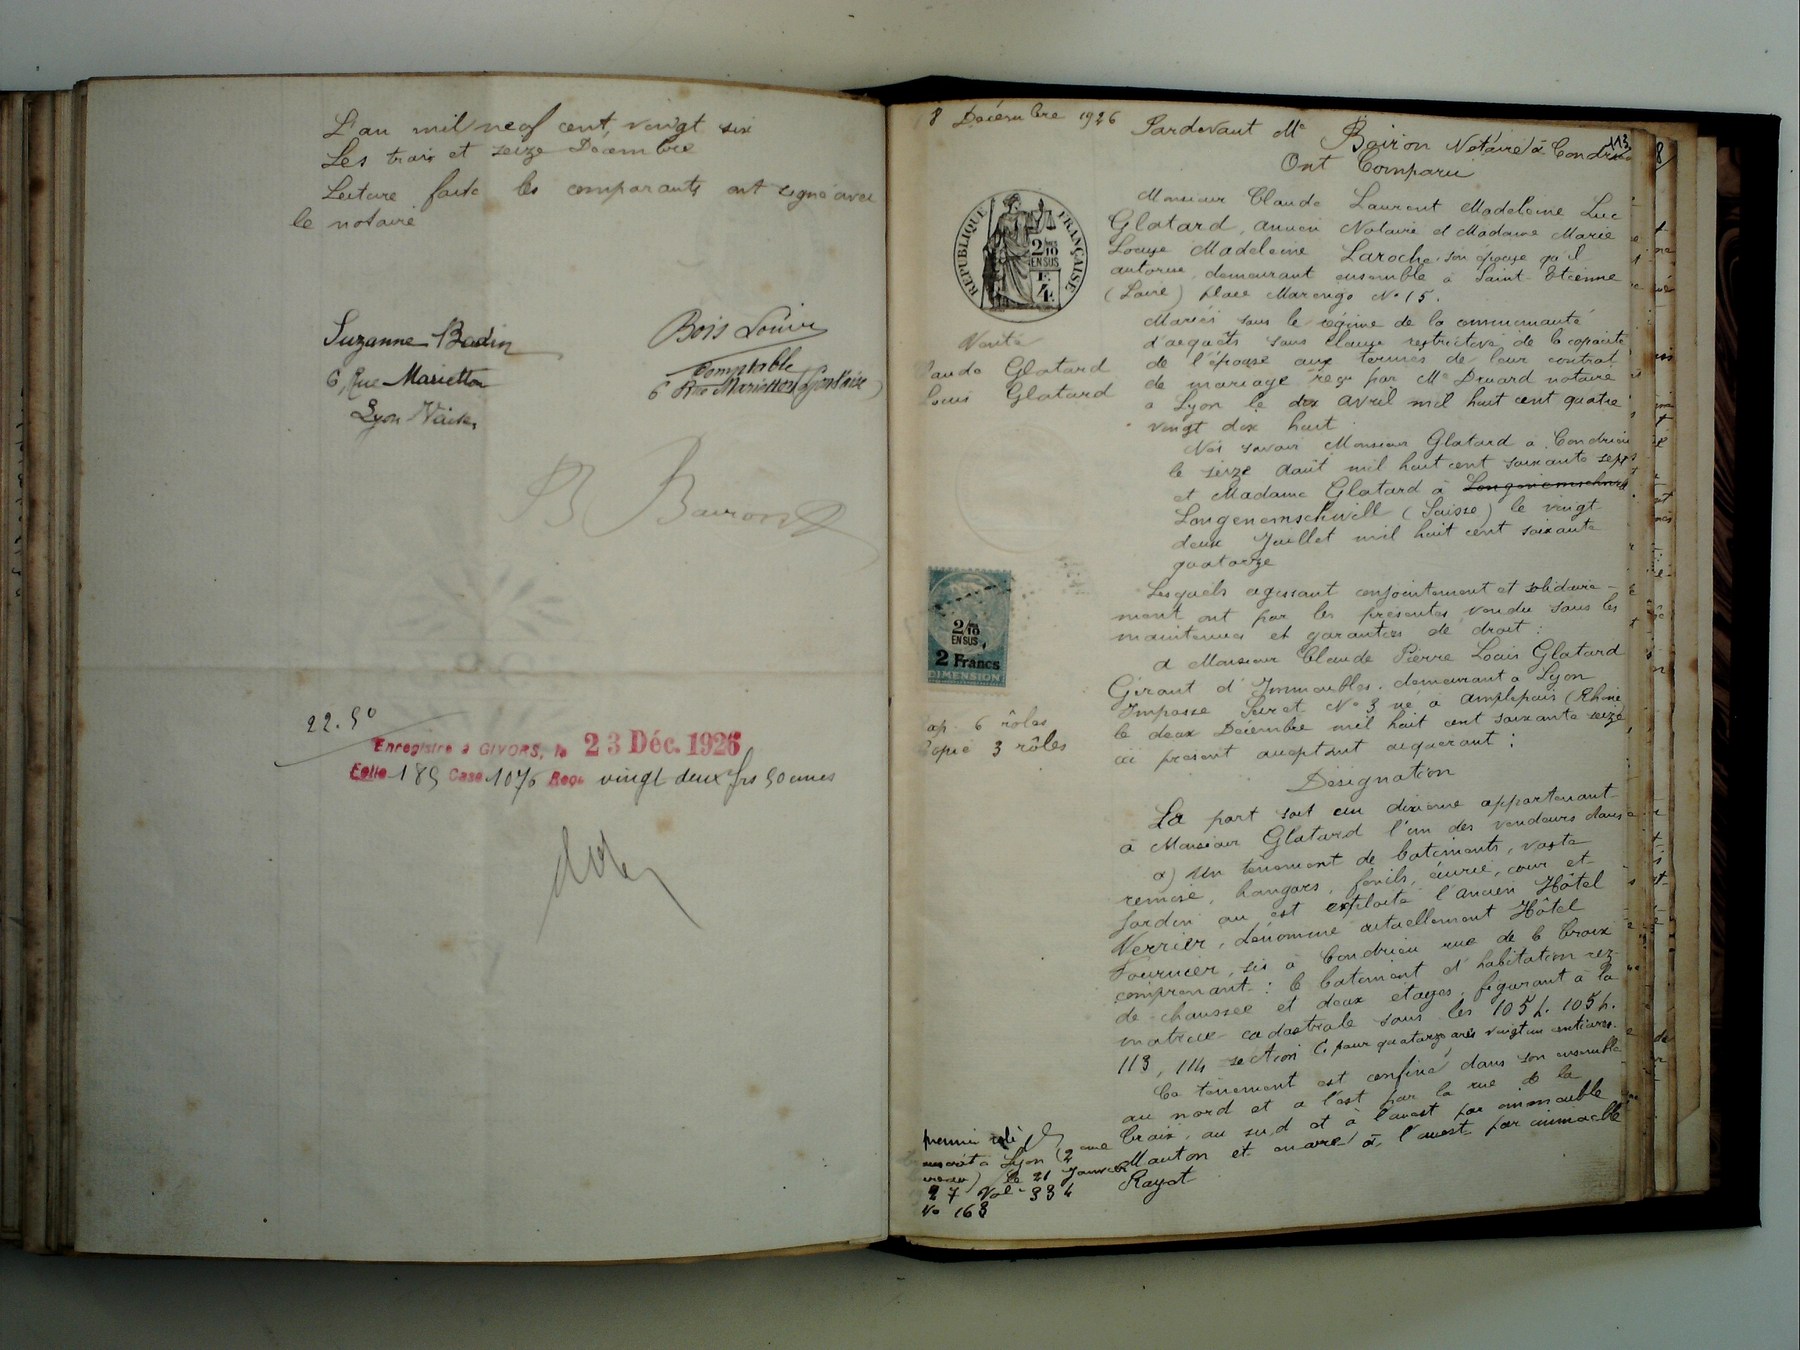 L'an mil neuf cent vingt six
Les trois et seize Decembre
Lecture faite les comparants ont signé avec
le notaire
Suzanne Badin
6 Rue Marietton
Lyon Vaise
Bois Louis
Comptable
6 Rue Marietton
B Bairon
22.50
Enregistré à GIVORS, le 23 Déc. 1926
Folio 189 Case 1076 Reçu vingt deux frs 50 cmes
8 Décembre 1926
Pardevant Me Bairon Notaire à Condrieu
113
8
Ont Comparu
RÉPUBLIQUE FRANÇAISE
2/10
EN SUS
F.
4.
Monsieur Claude Laurent Madeleine Luc
Glatard, ancien Notaire et Madame Marie
Louise Madeleine Laroche son épouse qu'il
autorise, demeurant ensemble à Saint-Etienne
(Loire) place Marengo No 15.
Mariés sous le régime de la communauté
d'acquêts sans clause restrictive de la capacité
de l'épouse aux termes de leur contrat
de mariage reçu par Me Druard notaire
à Lyon le dix avril mil huit cent quatre
vingt dix huit
Nés savoir Monsieur Glatard à Condrieu
le seize août mil huit cent soixante sept
et Madame Glatard à
Longenemschwill (Suisse) le vingt
deux Juillet mil huit cent soixante
quatorze
Lesquels agissant conjointement et solidaire-
ment ont par les présentes vendu sous les
maintenues et garanties de droit :
à Monsieur Claude Pierre Louis Glatard
Gérant d'Immeubles, demeurant à Lyon
Impasse Suret No 3 né à Amplepuis (Rhône
le deux Décembre mil huit cent soixante seize
ici présent acceptant acquérant :
Désignation
La part soit un dixième appartenant
à Monsieur Glatard l'un des vendeurs dans
a) Un tènement de batiments, vaste
remise, hangars, fenils, écurie, cour et
jardin ou est exploité l'ancien Hôtel
Verrier, dénommé actuellement Hôtel
Fournier, sis à Condrieu rue de la Croix
comprenant : le batiment d'habitation rez-
de chaussée et deux étages, figurant à la
matrice cadastrale sous les 105 p. 105 p.
113, 114 section C pour quatorze ares vingt un centiares.
Ce tènement est confiné dans son ensemble
au nord et à l'est par la rue de la
Croix, au sud et à l'ouest par immeuble
Mauton et encore à l'ouest par immeuble
Rayot
Vente
Claude Glatard
Louis Glatard
2/10
EN SUS
2 Francs
DIMENSION
6 rôles
Copie 3 rôles
premier rôle
Lyon (2eme
le 21 Janvier
27 Vol. 334
No 163